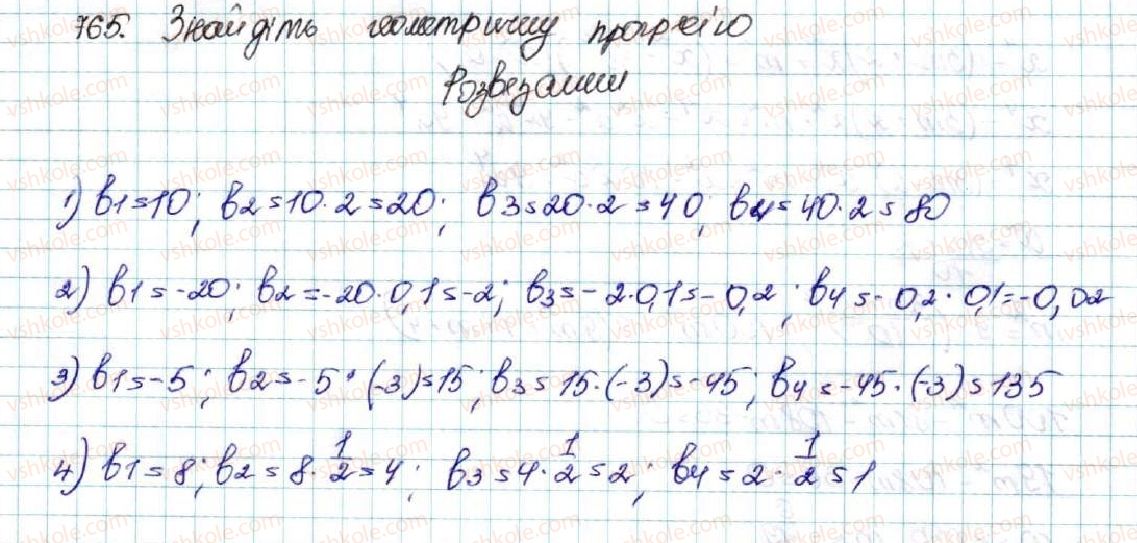 765. Знайдіть геометричну прогресію
Розвезання
1) b1=10; b2=10·2=20; b3=20·2=40; b4=40·2=80
2) b1=-20; b2=-20·0,1=-2; b3=-2·0,1=-0,2; b4=-0,2·0,1=-0,02
3) b1=-5; b2=-5·(-3)=15; b3=15·(-3)=-45; b4=-45·(-3)=135
4) b1=8; b2=8·1/2=4; b3=4·1/2=2; b4=2·1/2=1